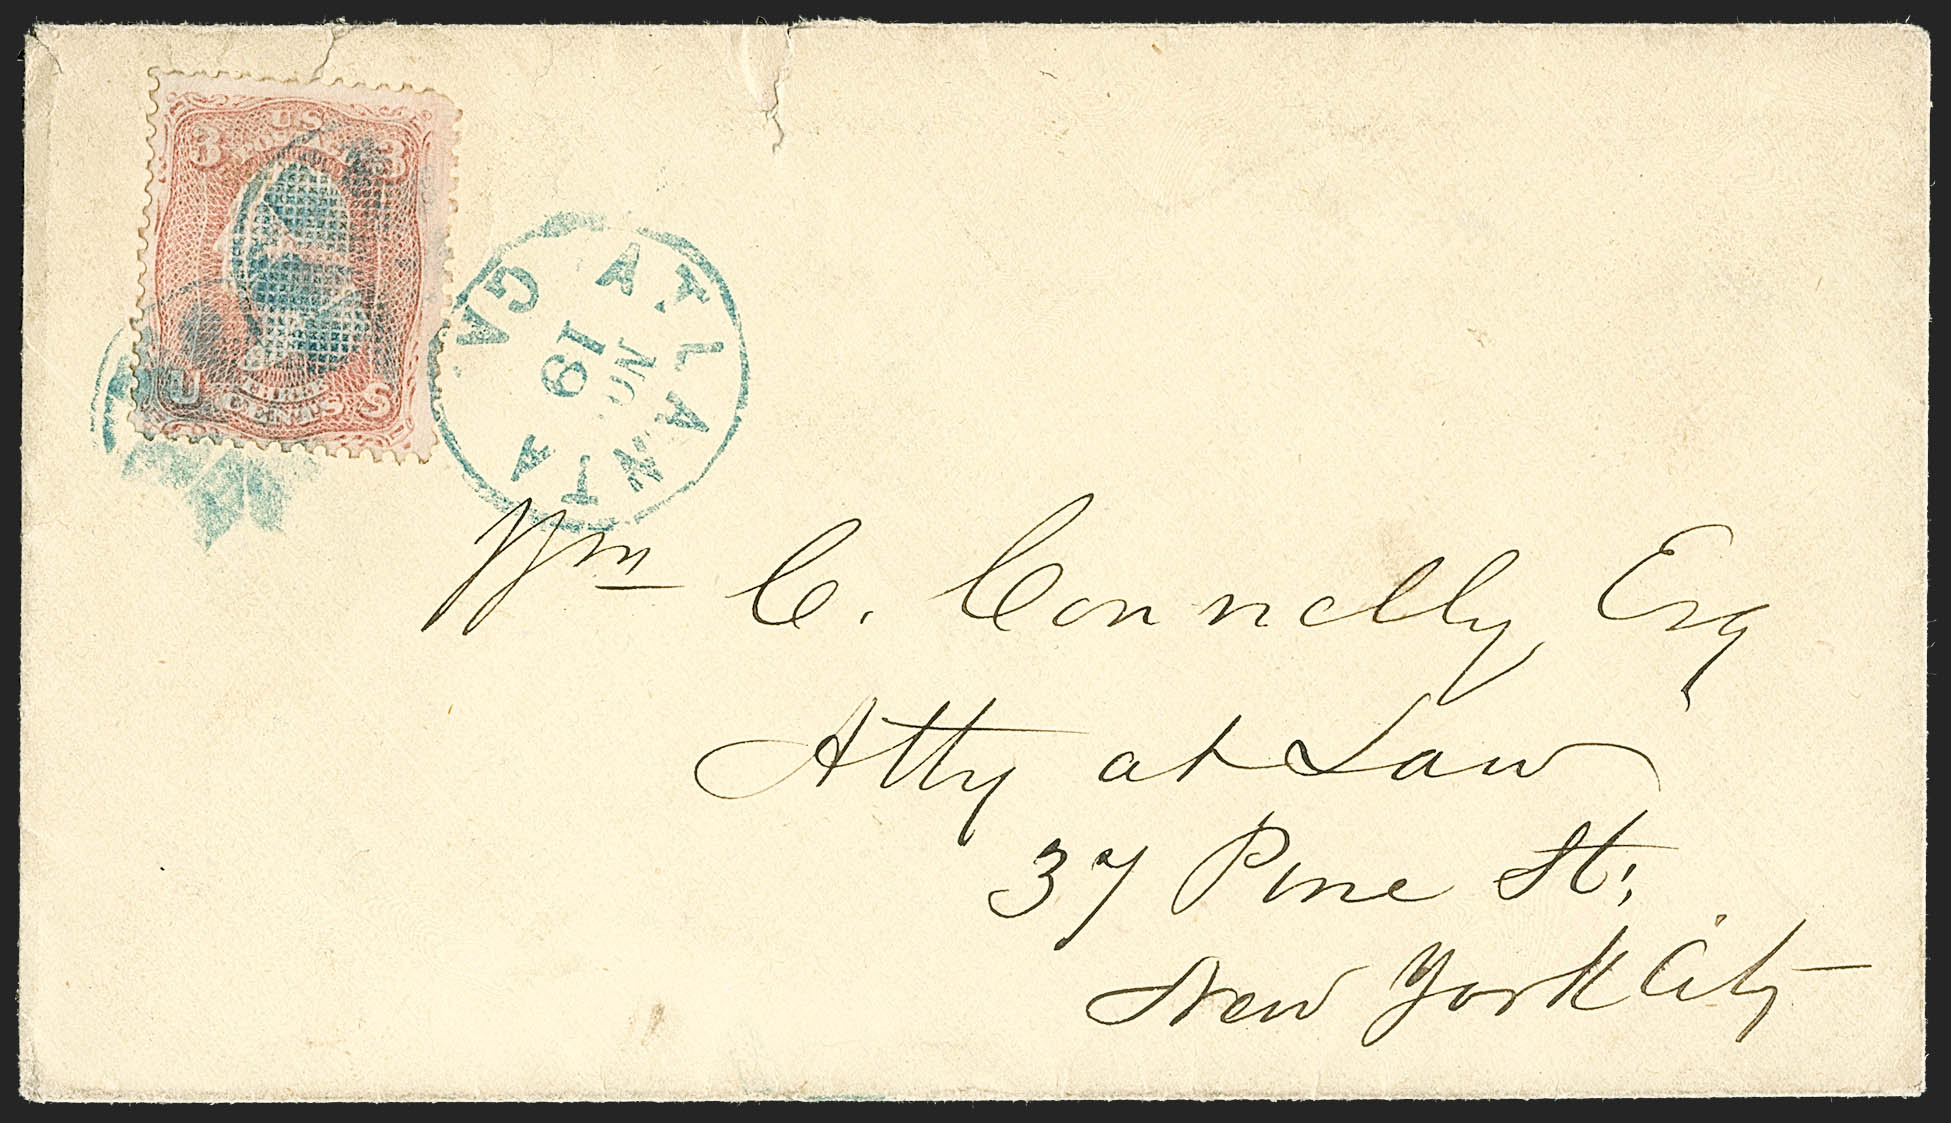 U S
POSTAGE
3 3
U S
THREE
CENTS
ATLANTA GA.
NOV
19
Wm C. Connelly Esq
Atty at Law
37 Pine St.
New York City